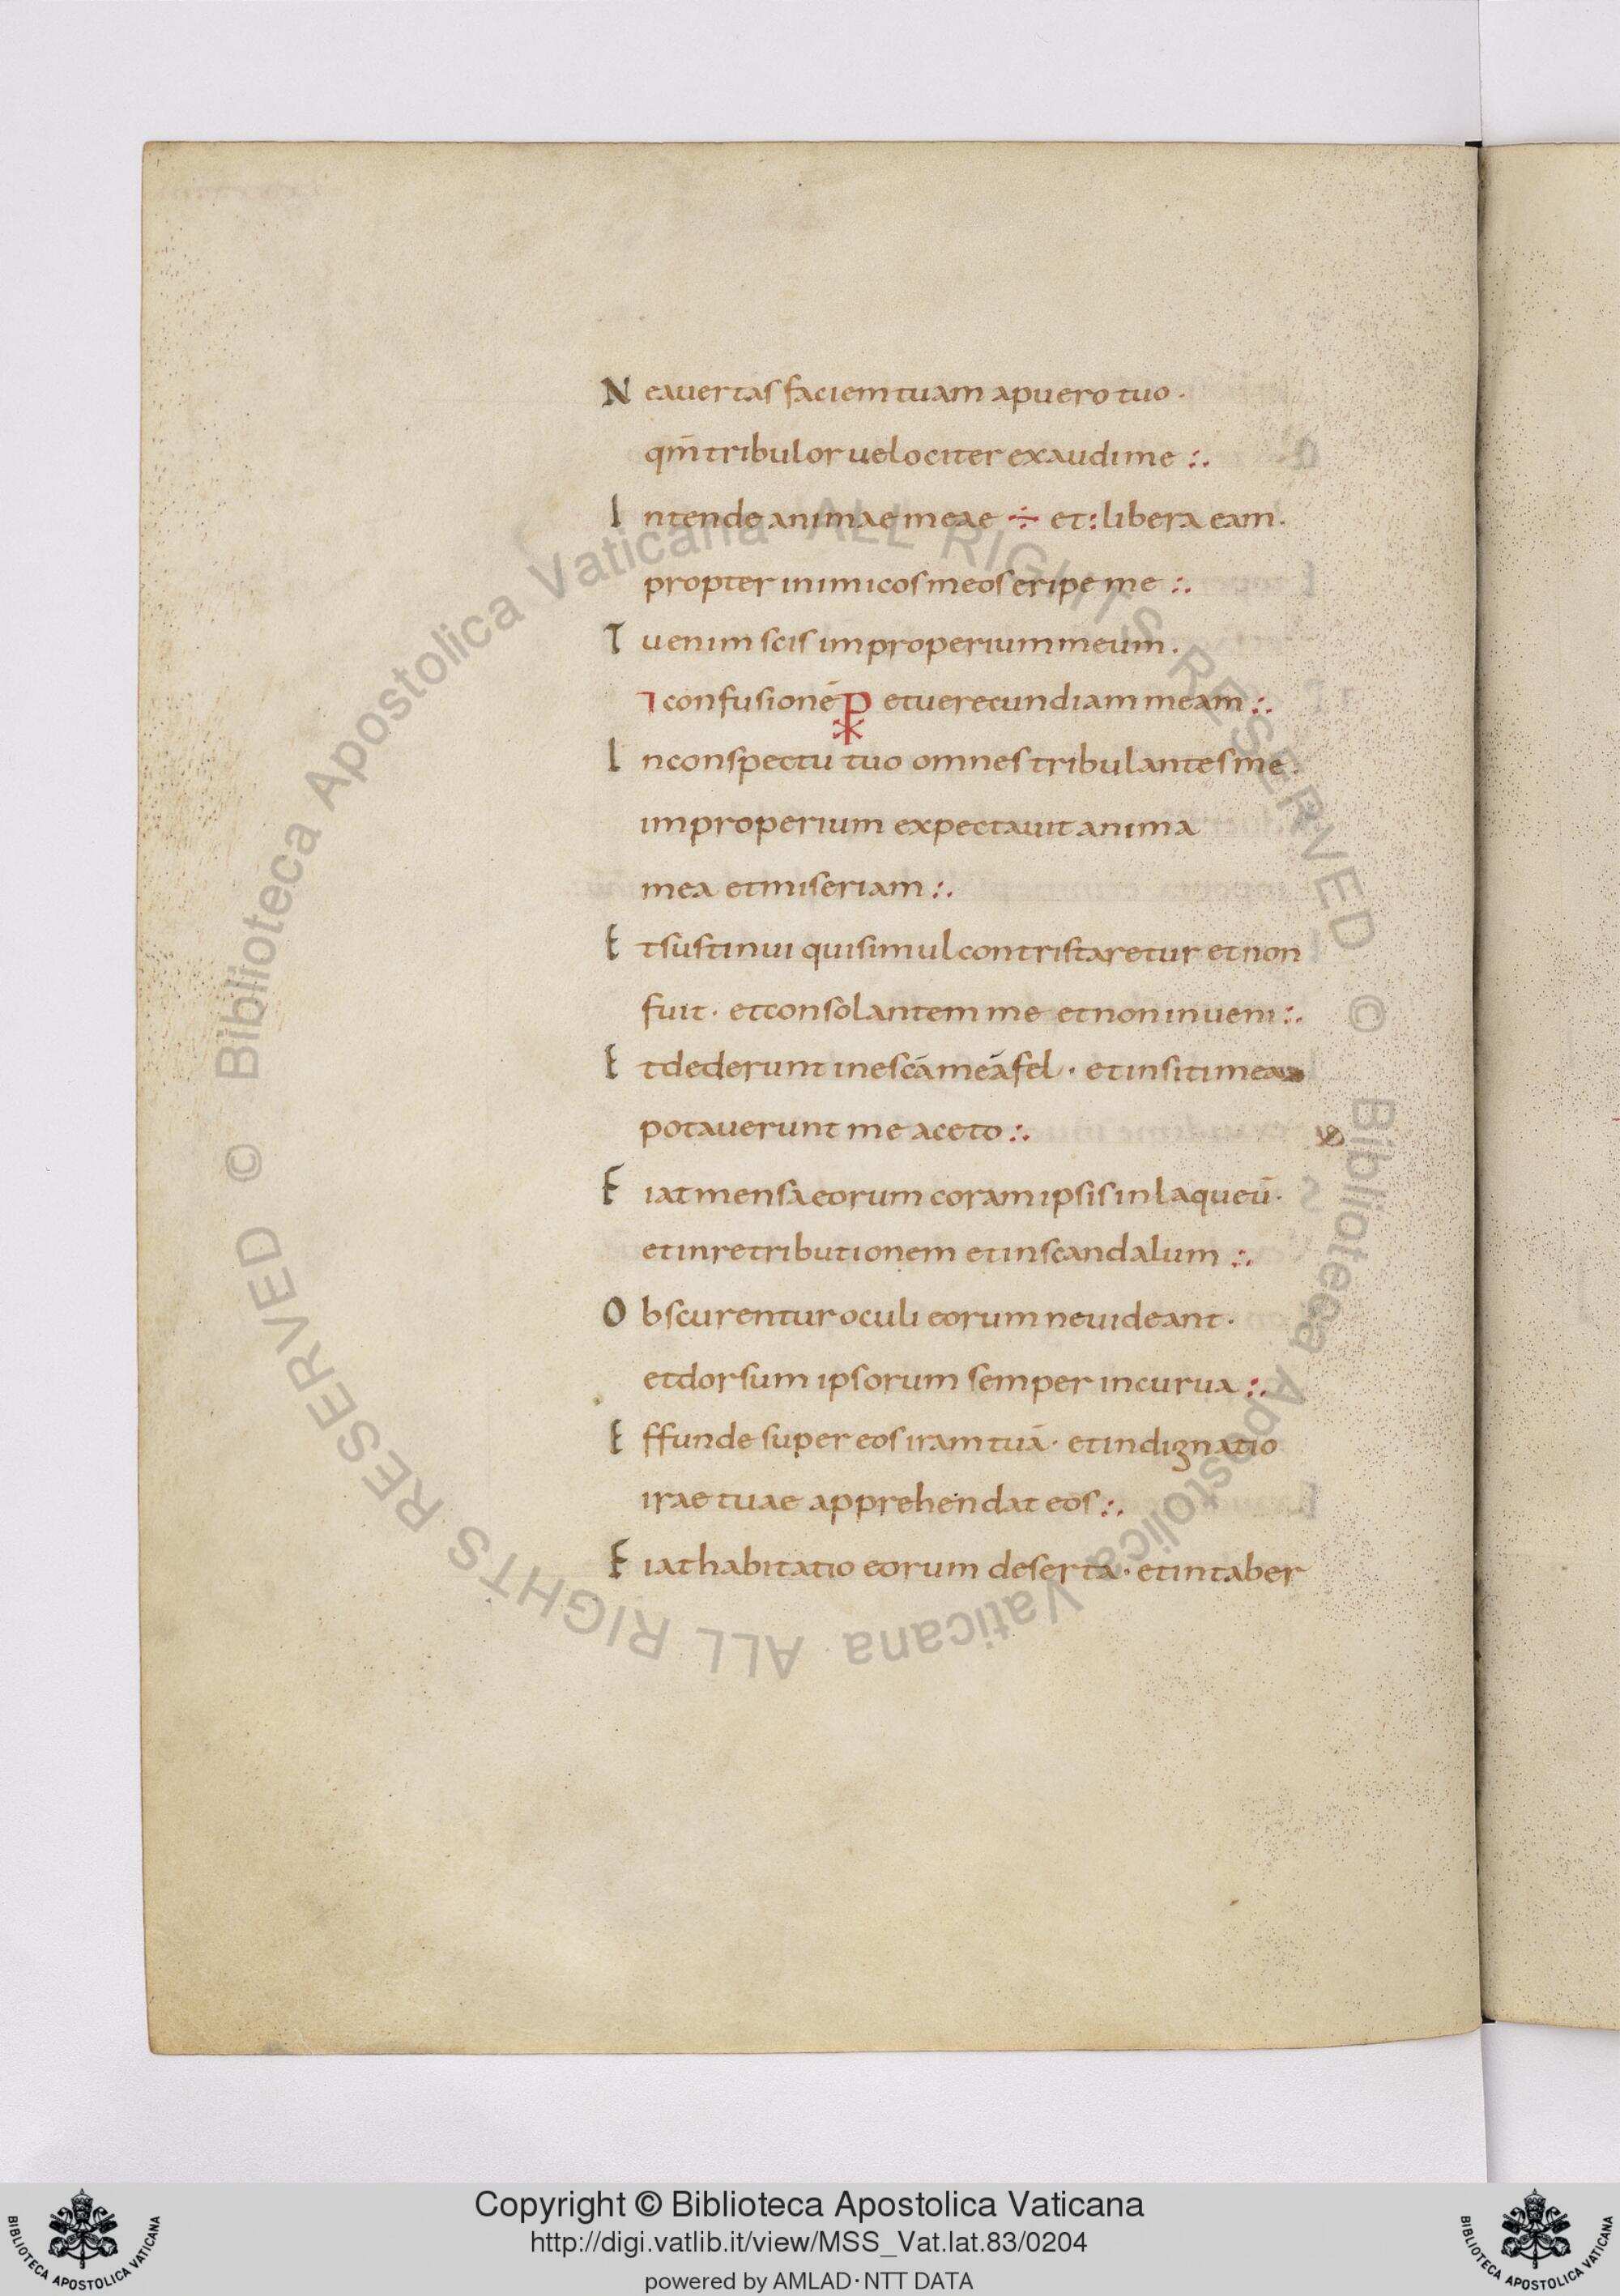 Neauertas faciem tuam apuero tuo ·
qm̄ tribulor uelociter exaudi me :.
Intende animae meae ÷ et: libera eam.
propter inimicos meos eripe me :.
Tu enim scis improperium meum.
⁊ confusionē ⳩ et uerecundiam meam :.
Inconspectu tuo omnes tribulantes me.
improperium expectauit anima
mea et miseriam :.
Et sustinui qui simul contristaretur et non
fuit · et consolantem me et non inueni :.
Et dederunt in escā meā fel · et in siti mea
potauerunt me aceto :.
Fiat mensa eorum coram ipsis in laqueū ·
et in retributionem et in scandalum :.
Obscurentur oculi eorum ne uideant ·
et dorsum ipsorum semper incurua :.
Effunde super eos iram tuā · et indignatio
irae tuae apprehendat eos :.
Fiat habitatio eorum deserta · et in taber
© Biblioteca Apostolica Vaticana ALL RIGHTS RESERVED
© Biblioteca Apostolica Vaticana ALL RIGHTS RESERVED
Copyright © Biblioteca Apostolica Vaticana
http://digi.vatlib.it/view/MSS_Vat.lat.83/0204
powered by AMLAD·NTT DATA
BIBLIOTECA APOSTOLICA VATICANA
BIBLIOTECA APOSTOLICA VATICANA